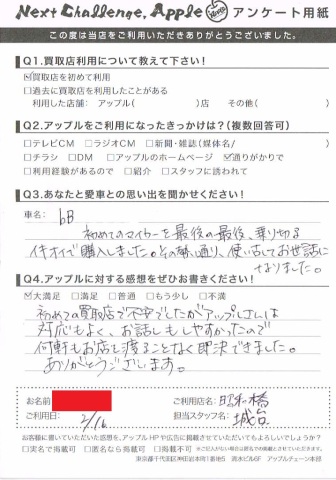 Next Challenge, Apple アンケート用紙
この度は当店をご利用いただきありがとうございました。
Q1.買取店利用について教えて下さい!
☑買取店を初めて利用
□過去に買取店を利用したことがある
利用した店舗: アップル( )店 その他( )
Q2.アップルをご利用になったきっかけは?(複数回答可)
□テレビCM □ラジオCM □新聞・雑誌(媒体名/ )
□チラシ □DM □アップルのホームページ ☑通りがかりで
□利用経験があるので □紹介 □スタッフに誘われて
Q3.あなたと愛車との思い出を聞かせください!
車名: bB
初めてのマイカーを最後の最後、乗り切る
イキオイで購入しました。その勢い通り、使い古してお世話に
なりました。
Q4.アップルに対する感想をぜひお書きください!
☑大満足 □満足 □普通 □もう少し □不満
初めての買取店で不安でしたがアップルさんは
対応もよく、お話しもしやすかったので
何軒もお店を渡ることなく即決できました。
ありがとうございます。
お名前 ご利用店名: 昭和橋
ご利用日: 2/16 担当スタッフ名:
お客様に書いていただいた感想を、アップルHPや広告に掲載させていただいてもよろしいでしょうか?
□実名で掲載可 □匿名なら掲載可 □掲載不可
東京都千代田区神田岩本町1番地5 清水ビル6F アップルチェーン本部